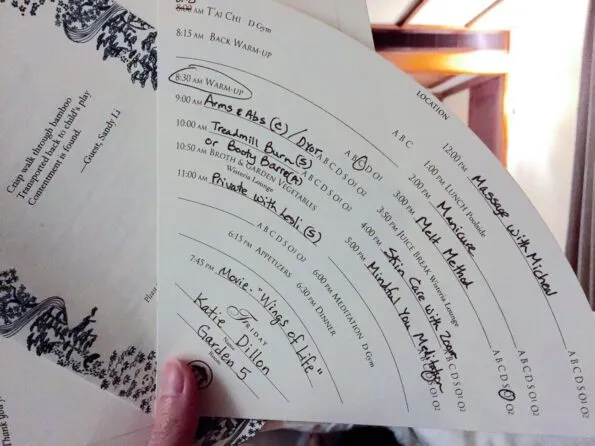 8:00 AM T'AI CHI D GYM
8:15 AM BACK WARM-UP
8:30 AM WARM-UP
A B C D O1
9:00 AM Arms & Abs (C) / D1 or
A B C D S O1 O2
10:00 AM Treadmill Burn (S)
or Booty Barre (A)
A B C D S O1 O2
10:50 AM BROTH & GARDEN VEGETABLES
Wisteria Lounge
11:00 AM Private with Lesli (S)
A B C D S O1 O2
LOCATION
A B C
12:00 PM Massage with Micheal
A B C D S O1 O2
1:00 PM LUNCH Poolside
2:00 PM Manicure
A B C D S O1 O2
3:00 PM Melt Method
A B C D S O1 O2
3:50 PM JUICE BREAK Wisteria Lounge
4:00 PM Skin Care with Zoom
A B C D S O1 O2
5:00 PM Mindful You Meditation
6:00 PM MEDITATION D Gym
6:15 PM APPETIZERS
6:30 PM DINNER
7:45 PM Movie- "Wings of Life"
FRIDAY
Katie Dillon
Name
Garden 5
Room
Crisp walk through bamboo
Transported back to child's play
Contentment is found.
—Guest, Sandy Li
Thank you?